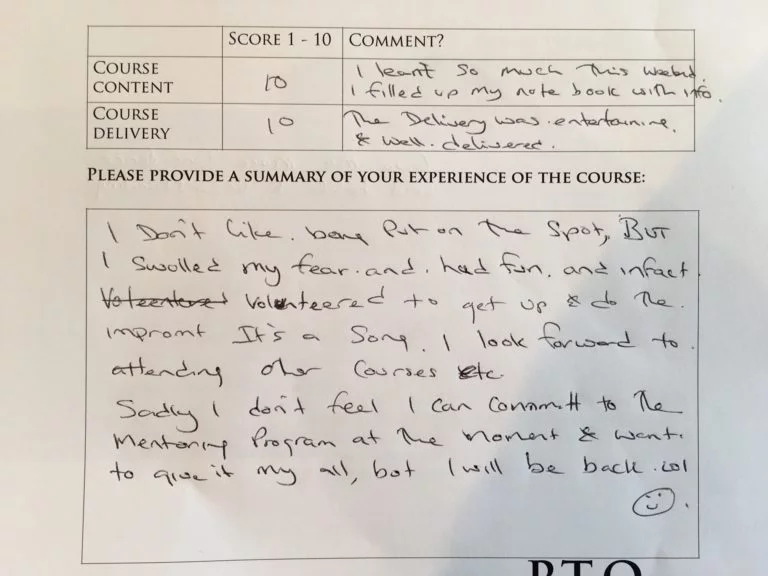 SCORE 1 - 10 COMMENT?
COURSE CONTENT 10 I learnt So much This weekend.
I filled up my note book with info.
COURSE DELIVERY 10 The Delivery was entertaining.
& well delivered.
PLEASE PROVIDE A SUMMARY OF YOUR EXPERIENCE OF THE COURSE:
I Don't like being Put on The Spot, BUT
I Swolled my fear and had fun. and infact
Voleentered Volunteered to get up & do The
impromt It's a Song. I look forward to
attending other Courses etc.
Sadly I don't feel I can Committ to The
Mentoring Program at The moment & want
to give it my all, but I will be back lol
P.T.O